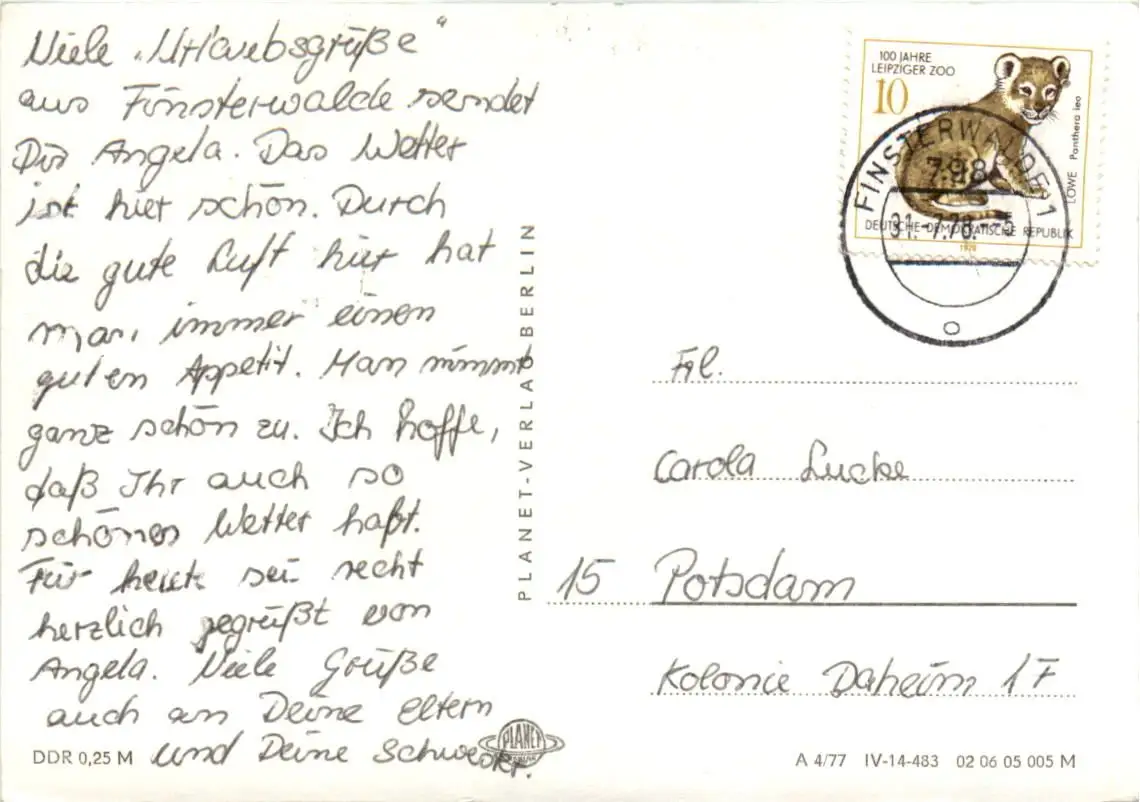 Viele „Urlaubsgrüße“
aus Finsterwalde sendet
Dir Angela. Das Wetter
ist hier schön. Durch
die gute Luft hier hat
man immer einen
guten Appetit. Man nimmt
ganz schön zu. Ich hoffe,
daß Ihr auch so
schönes Wetter habt.
Für heute sei recht
herzlich gegrüßt von
Angela. Viele Grüße
auch an Deine Eltern
und Deine Schwester.
DDR 0,25 M
PLANET
PLANET-VERLAG BERLIN
100 JAHRE
LEIPZIGER ZOO
10
LÖWE Panthera leo
DEUTSCHE DEMOKRATISCHE REPUBLIK
1978
FINSTERWALDE 1
798
31.-7.78.--5
Frl.
Carola Lucke
15 Potsdam
Kolonie Daheim 1F
A 4/77 IV-14-483 02 06 05 005 M